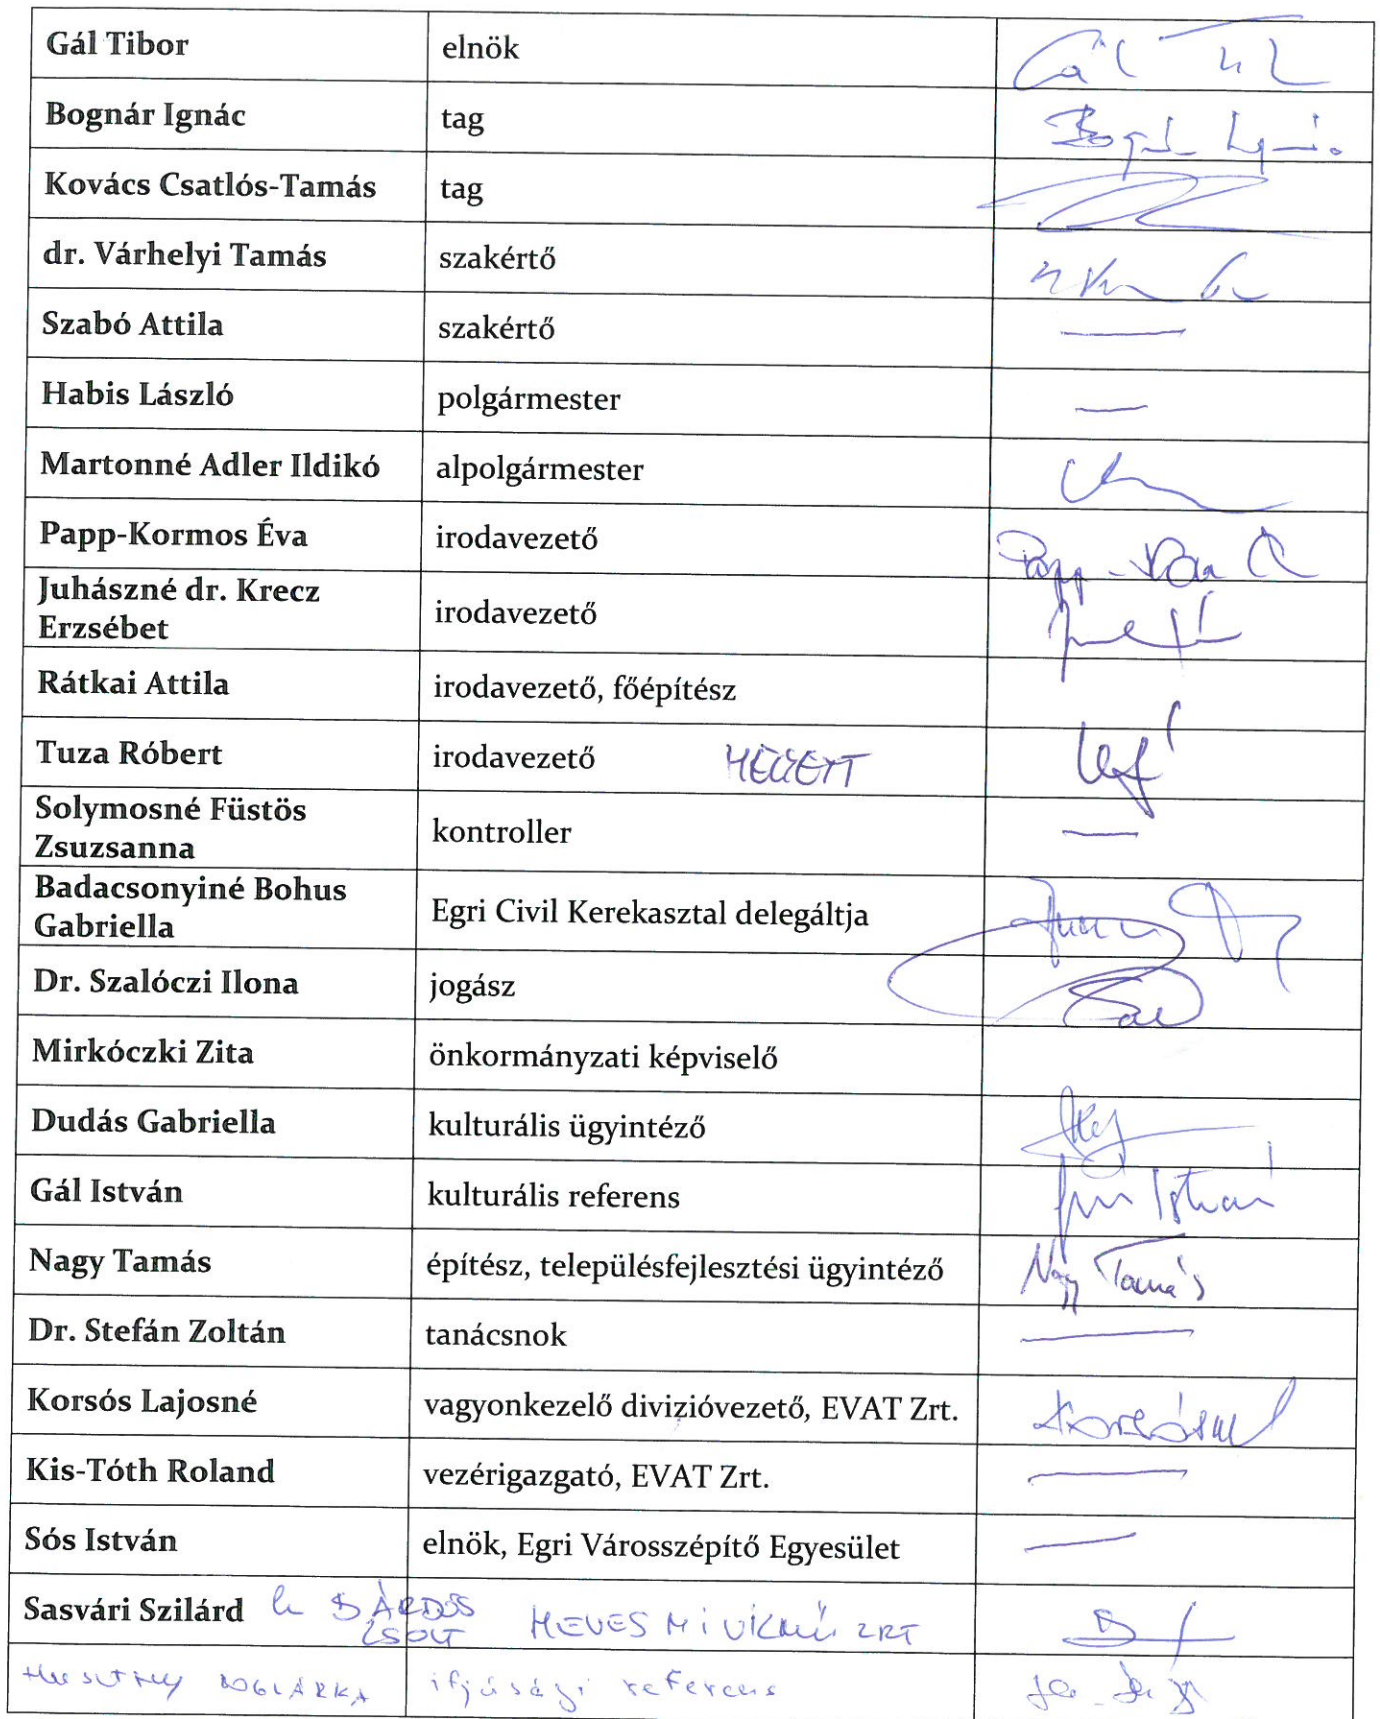 Gál Tibor elnök
Bognár Ignác tag
Kovács Csatlós-Tamás tag
dr. Várhelyi Tamás szakértő
Szabó Attila szakértő
Habis László polgármester
Martonné Adler Ildikó alpolgármester
Papp-Kormos Éva irodavezető
Juhászné dr. Krecz
Erzsébet
irodavezető
Rátkai Attila irodavezető, főépítész
Tuza Róbert irodavezető HELYETT
Solymosné Füstös
Zsuzsanna
kontroller
Badacsonyiné Bohus
Gabriella
Egri Civil Kerekasztal delegáltja
Dr. Szalóczi Ilona jogász
Mirkóczki Zita önkormányzati képviselő
Dudás Gabriella kulturális ügyintéző
Gál István kulturális referens István
Nagy Tamás építész, településfejlesztési ügyintéző Nagy Tamás
Dr. Stefán Zoltán tanácsnok
Korsós Lajosné vagyonkezelő divizióvezető, EVAT Zrt.
Kis-Tóth Roland vezérigazgató, EVAT Zrt.
Sós István elnök, Egri Városszépítő Egyesület
Sasvári Szilárd h BÁRDOS
ZSOLT
HEVES MI VÍZMŰ ZRT
BOGLÁRKA ifjúsági referens